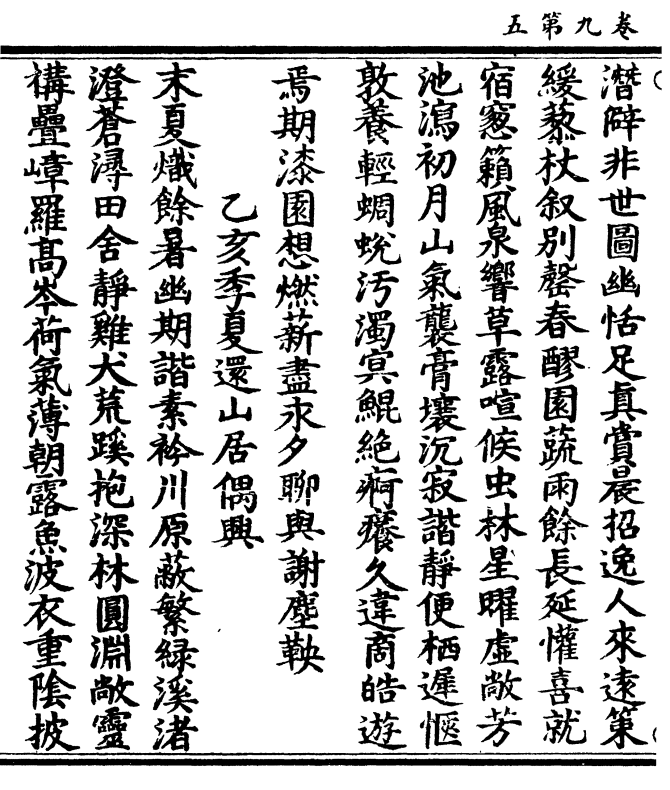 卷九第五
潛辟非世圖幽恬足真賞晨招逸人來遠策
緩藜杖叙別罄春醪園蔬雨餘長延懽喜就
宿窓籟風泉響草露喧候虫林星曜虛敞芳
池瀉初月山氣襲膏壤沉寂諧靜便栖遲愜
敦養輕蜩蛻汚濁冥鯤絶痾癢久違商皓遊
焉期漆園想燃薪盡永夕聊與謝塵鞅
乙亥季夏還山居偶興
末夏熾餘暑幽期諧素衿川原蔽繁緑溪渚
澄蒼潯田舍靜雞犬荒蹊抱深林圓淵敞靈
構疊嶂羅高岑荷氣薄朝露魚波衣重陰披